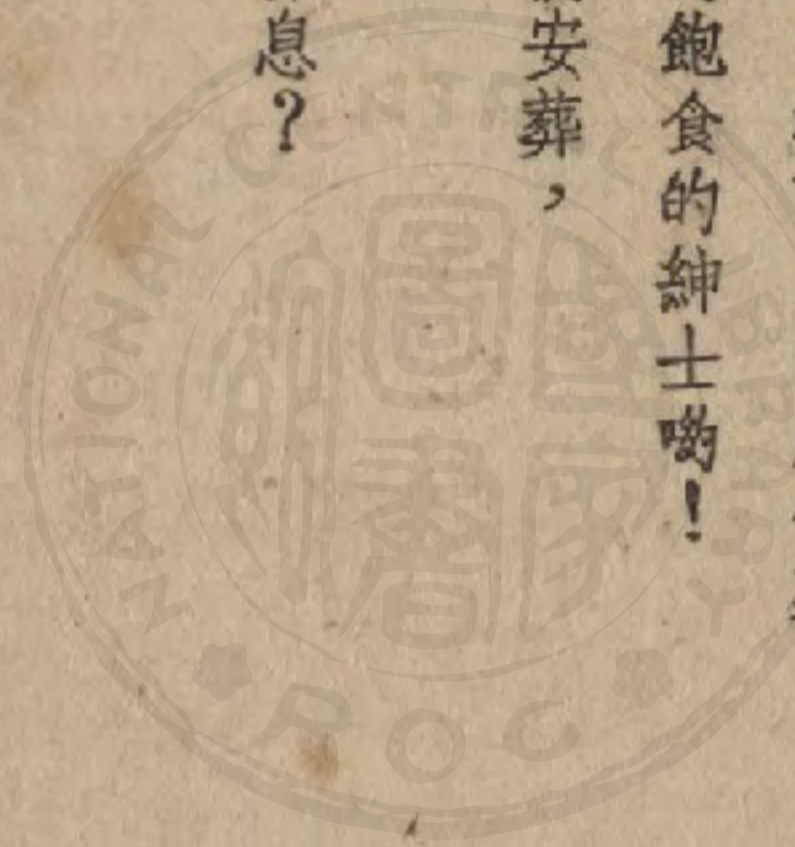 飽食的紳士喲！
安葬，
息？
NATIONAL CENTRAL LIBRARY
ROC
國家圖書館